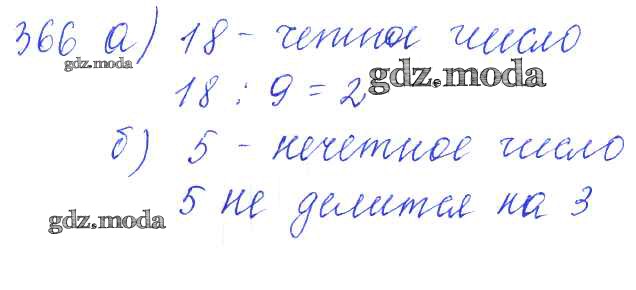 366 а) 18 - четное число
gdz.moda
18 : 9 = 2
gdz.moda
б) 5 - нечетное число
5 не делится на 3
gdz.moda